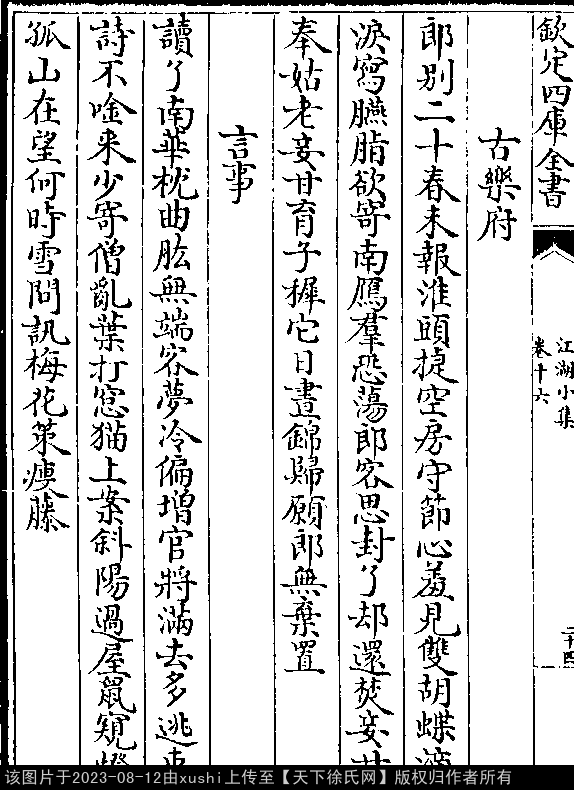 欽定四庫全書
江湖小集
卷十六
二十四
古樂府
郎别二十春未報淮頭捷空房守節心羞見雙胡蝶滴
淚寫臙脂欲寄南鴈羣恐蕩郎客思封了却還焚妾甘
奉姑老妾甘育子穉它日晝錦歸願郎無棄置
言事
讀了南華枕曲肱無端客夢冷偏增官將滿去多逃吏
詩不唫来少寄僧亂葉打窓猫上案斜陽過屋鼠窺燈
孤山在望何時雪問訊梅花策瘦藤
该图片于2023-08-12由xushi上传至【天下徐氏网】版权归作者所有